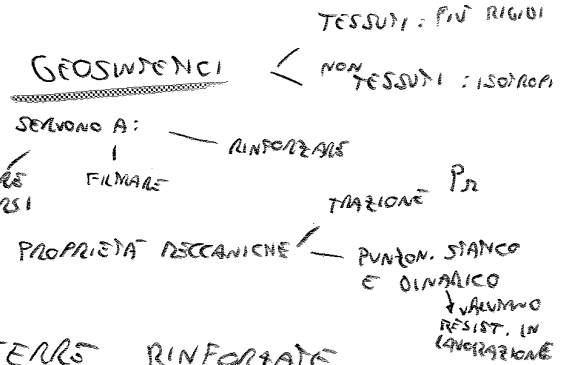 TESSUTI : PIÙ RIGIDI
GEOSINTETICI
NON TESSUTI : ISOTROPI
SERVONO A :
RINFORZARE
FILTRARE
TRAZIONE
PROPRIETÀ MECCANICHE
PUNZON. STATICO
E DINAMICO
VALUTANO
RESIST. IN
LAVORAZIONE
TERRE RINFORZATE